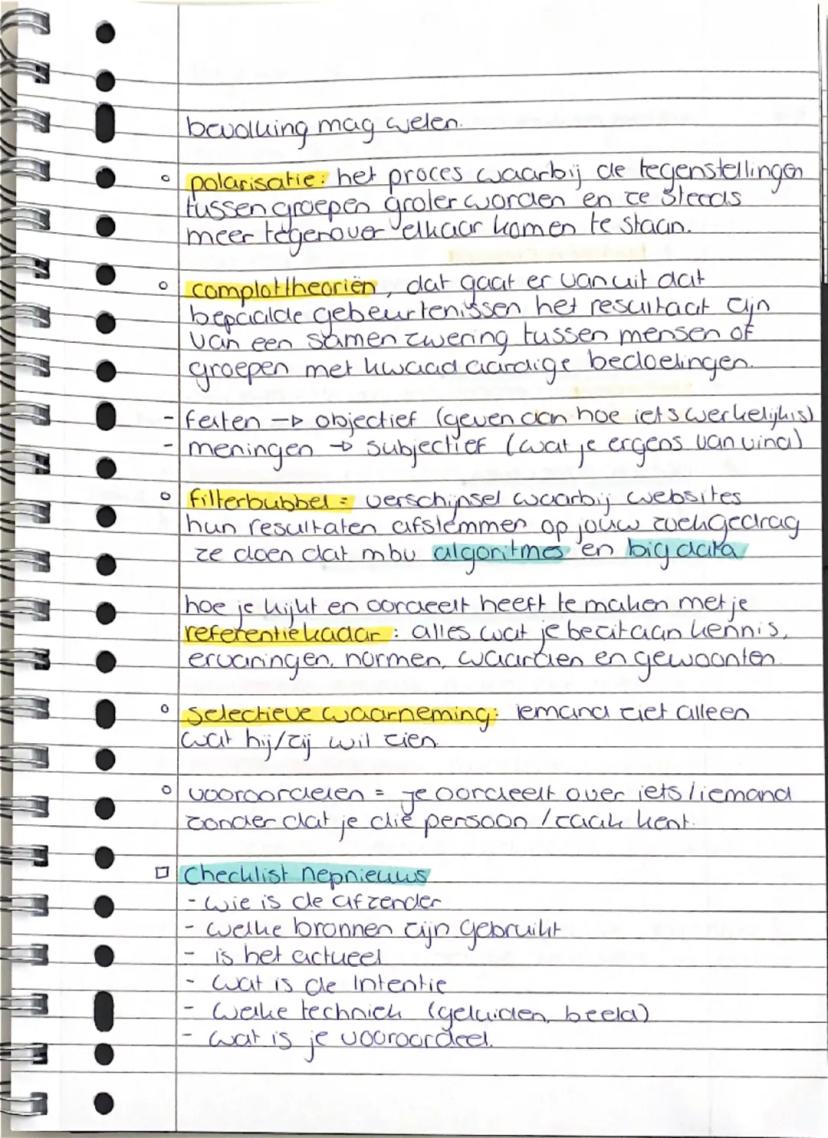 bevolking mag weten.
° polarisatie: het proces waarbij de tegenstellingen
tussen groepen groter worden en ze steeds
meer tegenover elkaar komen te staan.
° complottheoriën, dat gaat er van uit dat
bepaalde gebeurtenissen het resultaat zijn
van een samenzwering tussen mensen of
groepen met kwaadaardige bedoelingen.
- feiten → objectief (geven aan hoe iets werkelijk is)
- meningen → subjectief (wat je ergens van vind)
° filterbubbel = verschijnsel waarbij websites
hun resultaten afstemmen op jouw zoekgedrag
ze doen dat mbv algoritmes en big data
hoe je kijkt en oordeelt heeft te maken met je
referentiekadar: alles wat je bezit aan kennis,
ervaringen, normen, waarden en gewoonten.
° selectieve waarneming: iemand ziet alleen
wat hij/zij wil zien.
° vooroordelen = je oordeelt over iets/iemand
zonder dat je die persoon/zaak kent.
□ Checklist nepnieuws
- wie is de afzender
- welke bronnen zijn gebruikt
- is het actueel
- wat is de intentie
- welke techniek (geluiden, beeld)
- wat is je vooroordeel.